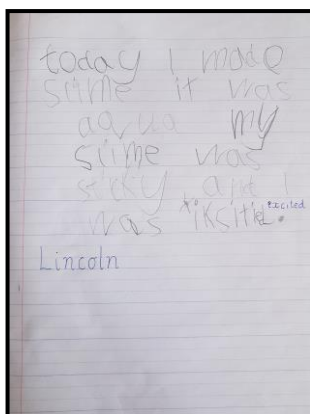 today I made
slime it was
aqua my
slime was
sticky and I
was iksitid. excited
Lincoln